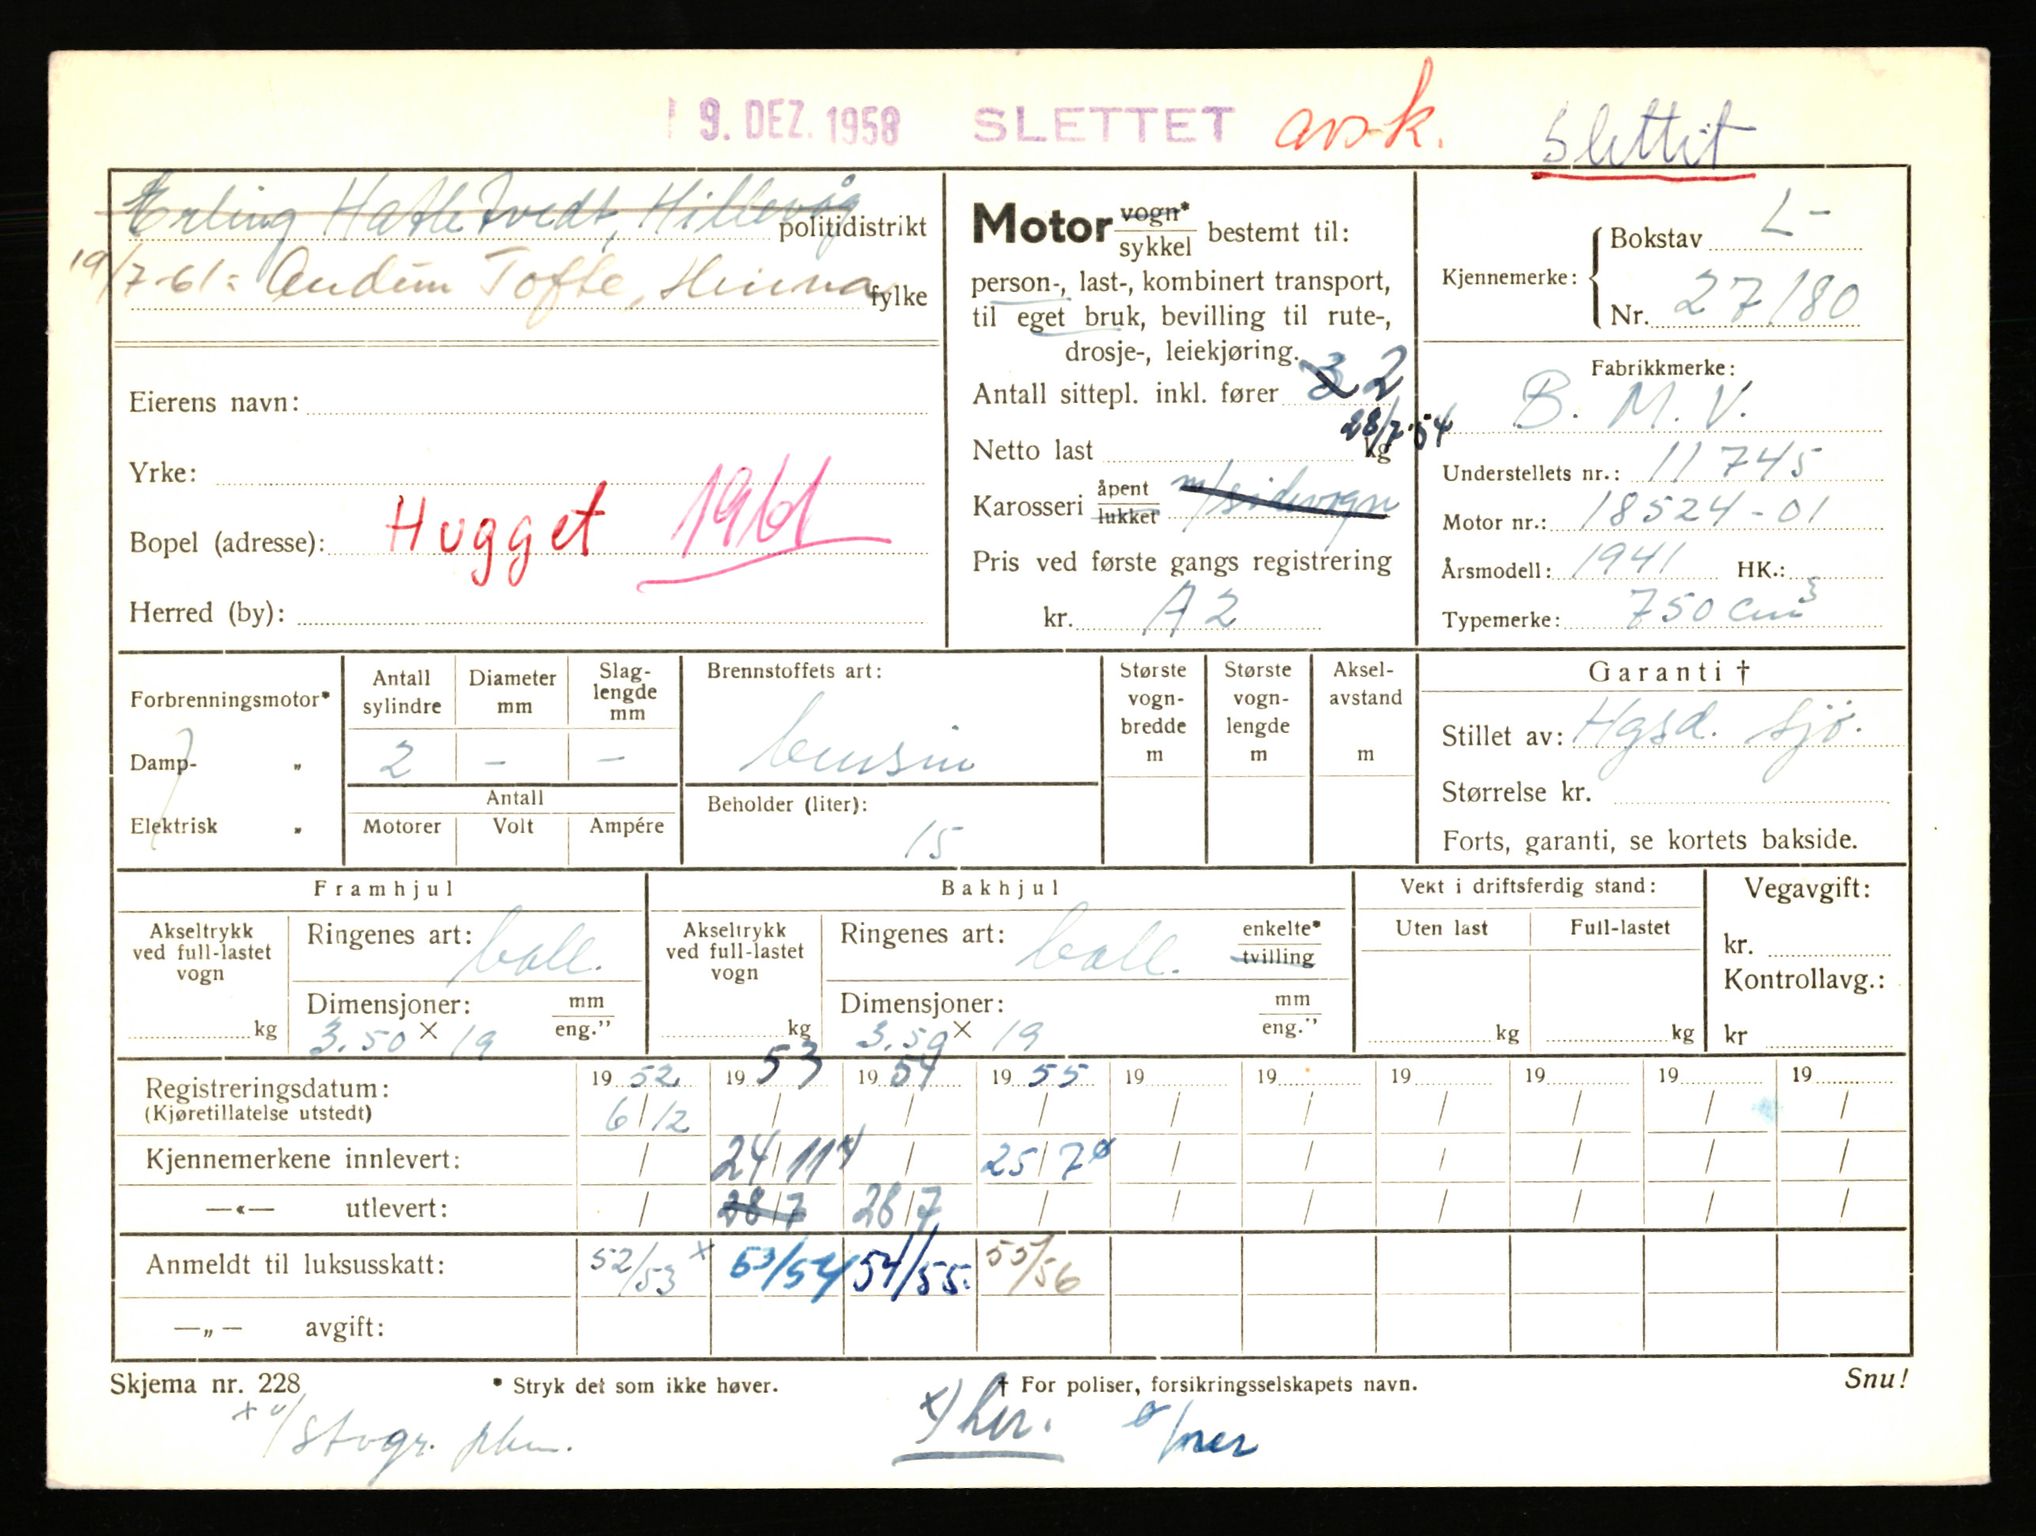 9. DEZ. 1958 SLETTET avsk. Slettit
Erling Hatletvedt, Hillevåg politidistrikt
19/7-61: Audun Tofte, Hinna fylke
Eierens navn:
Yrke:
Bopel (adresse): Hugget 1961
Herred (by):
Motor vogn*/sykkel bestemt til:
person-, last-, kombinert transport,
til eget bruk, bevilling til rute-,
drosje-, leiekjøring.
Antall sittepl. inkl. fører 3 2
28/7-54
Netto last kg
Karosseri åpent/lukket m/sidevogn
Pris ved første gangs registrering
kr. A2
Kjennemerke: Bokstav L-
Nr. 27180
Fabrikkmerke:
B. M. V.
Understellets nr.: 11745
Motor nr.: 18524-01
Årsmodell: 1941 HK.:
Typemerke: 750 cm3
Forbrenningsmotor*
Damp- "
Elektrisk "
Antall sylindre 2
Diameter mm -
Slag-lengde mm -
Antall
Motorer Volt Ampére
Brennstoffets art:
bensin
Beholder (liter):
15
Største vogn-bredde m
Største vogn-lengde m
Aksel-avstand m
Garanti †
Stillet av: Hgsd. Sjø.
Størrelse kr.
Forts, garanti, se kortets bakside.
Framhjul
Akseltrykk ved full-lastet vogn kg
Ringenes art: ball.
Dimensjoner: mm/eng."
3.50 x 19
Bakhjul
Akseltrykk ved full-lastet vogn kg
Ringenes art: ball. enkelte*/tvilling
Dimensjoner: mm/eng."
3.50 x 19
Vekt i driftsferdig stand:
Uten last Full-lastet
kg kg
Vegavgift:
kr.
Kontrollavg.:
kr
Registreringsdatum: 19 52 19 53 19 54 19 55 19 19 19 19 19 19
(Kjøretillatelse utstedt) 6/12 / / / / / / / / /
Kjennemerkene innlevert: / 24/11 x) / 25/7 ø / / / / / /
—«— utlevert: / 28/7 28/7 / / / / / / /
Anmeldt til luksusskatt: 52/53 x 53/54 54/55. 55/56
—„— avgift:
Skjema nr. 228 * Stryk det som ikke høver. † For poliser, forsikringsselskapets navn. Snu!
x) her. ø/her